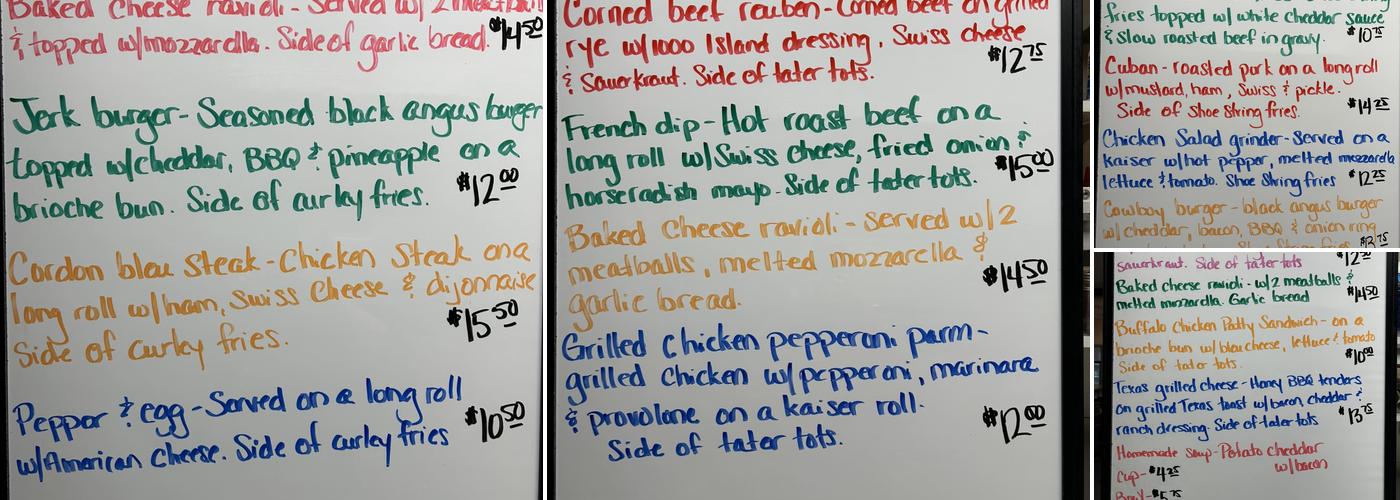 Baked Cheese ravioli - Served w/ 2 meatballs
& topped w/mozzarella. Side of garlic bread. $14.50
Jerk burger - Seasoned black angus burger
topped w/cheddar, BBQ & pineapple on a
brioche bun. Side of curley fries. $12.00
Cordon bleu Steak - Chicken Steak on a
long roll w/ham, Swiss Cheese & dijonnaise
Side of curley fries. $15.50
Pepper & egg - Served on a long roll
w/American Cheese. Side of curley fries $10.50
Corned beef reuben - Corned beef on grilled
rye w/1000 Island dressing, Swiss cheese
& Sauerkraut. Side of tater tots. $12.75
French dip - Hot roast beef on a
long roll w/Swiss Cheese, fried onion &
horseradish mayo. Side of tater tots. $15.00
Baked Cheese ravioli - served w/2
meatballs, melted mozzarella &
garlic bread. $14.50
Grilled Chicken pepperoni parm -
grilled Chicken w/pepperoni, marinara
& provolone on a kaiser roll.
Side of tater tots. $12.00
fries topped w/ white cheddar sauce
& slow roasted beef in gravy. $10.75
Cuban - roasted pork on a long roll
w/mustard, ham, Swiss & pickle.
Side of Shoe String fries. $14.25
Chicken Salad grinder - Served on a
kaiser w/hot pepper, melted mozzarella
lettuce & tomato. Shoe String fries $12.25
Cowboy burger - black angus burger
w/cheddar, bacon, BBQ & onion ring
Shoe String fries $12.75
sauerkraut. Side of tater tots
Baked cheese ravioli - w/2 meatballs &
melted mozzarella. Garlic bread $14.50
Buffalo Chicken Patty Sandwich - on a
brioche bun w/bleu cheese, lettuce & tomato
Side of tater tots. $10.00
Texas grilled cheese - Honey BBQ tenders
on grilled Texas toast w/bacon, cheddar &
ranch dressing. Side of tater tots $13.75
Homemade Soup - Potato cheddar
w/bacon
Cup - $4.25
Bowl - $5.75